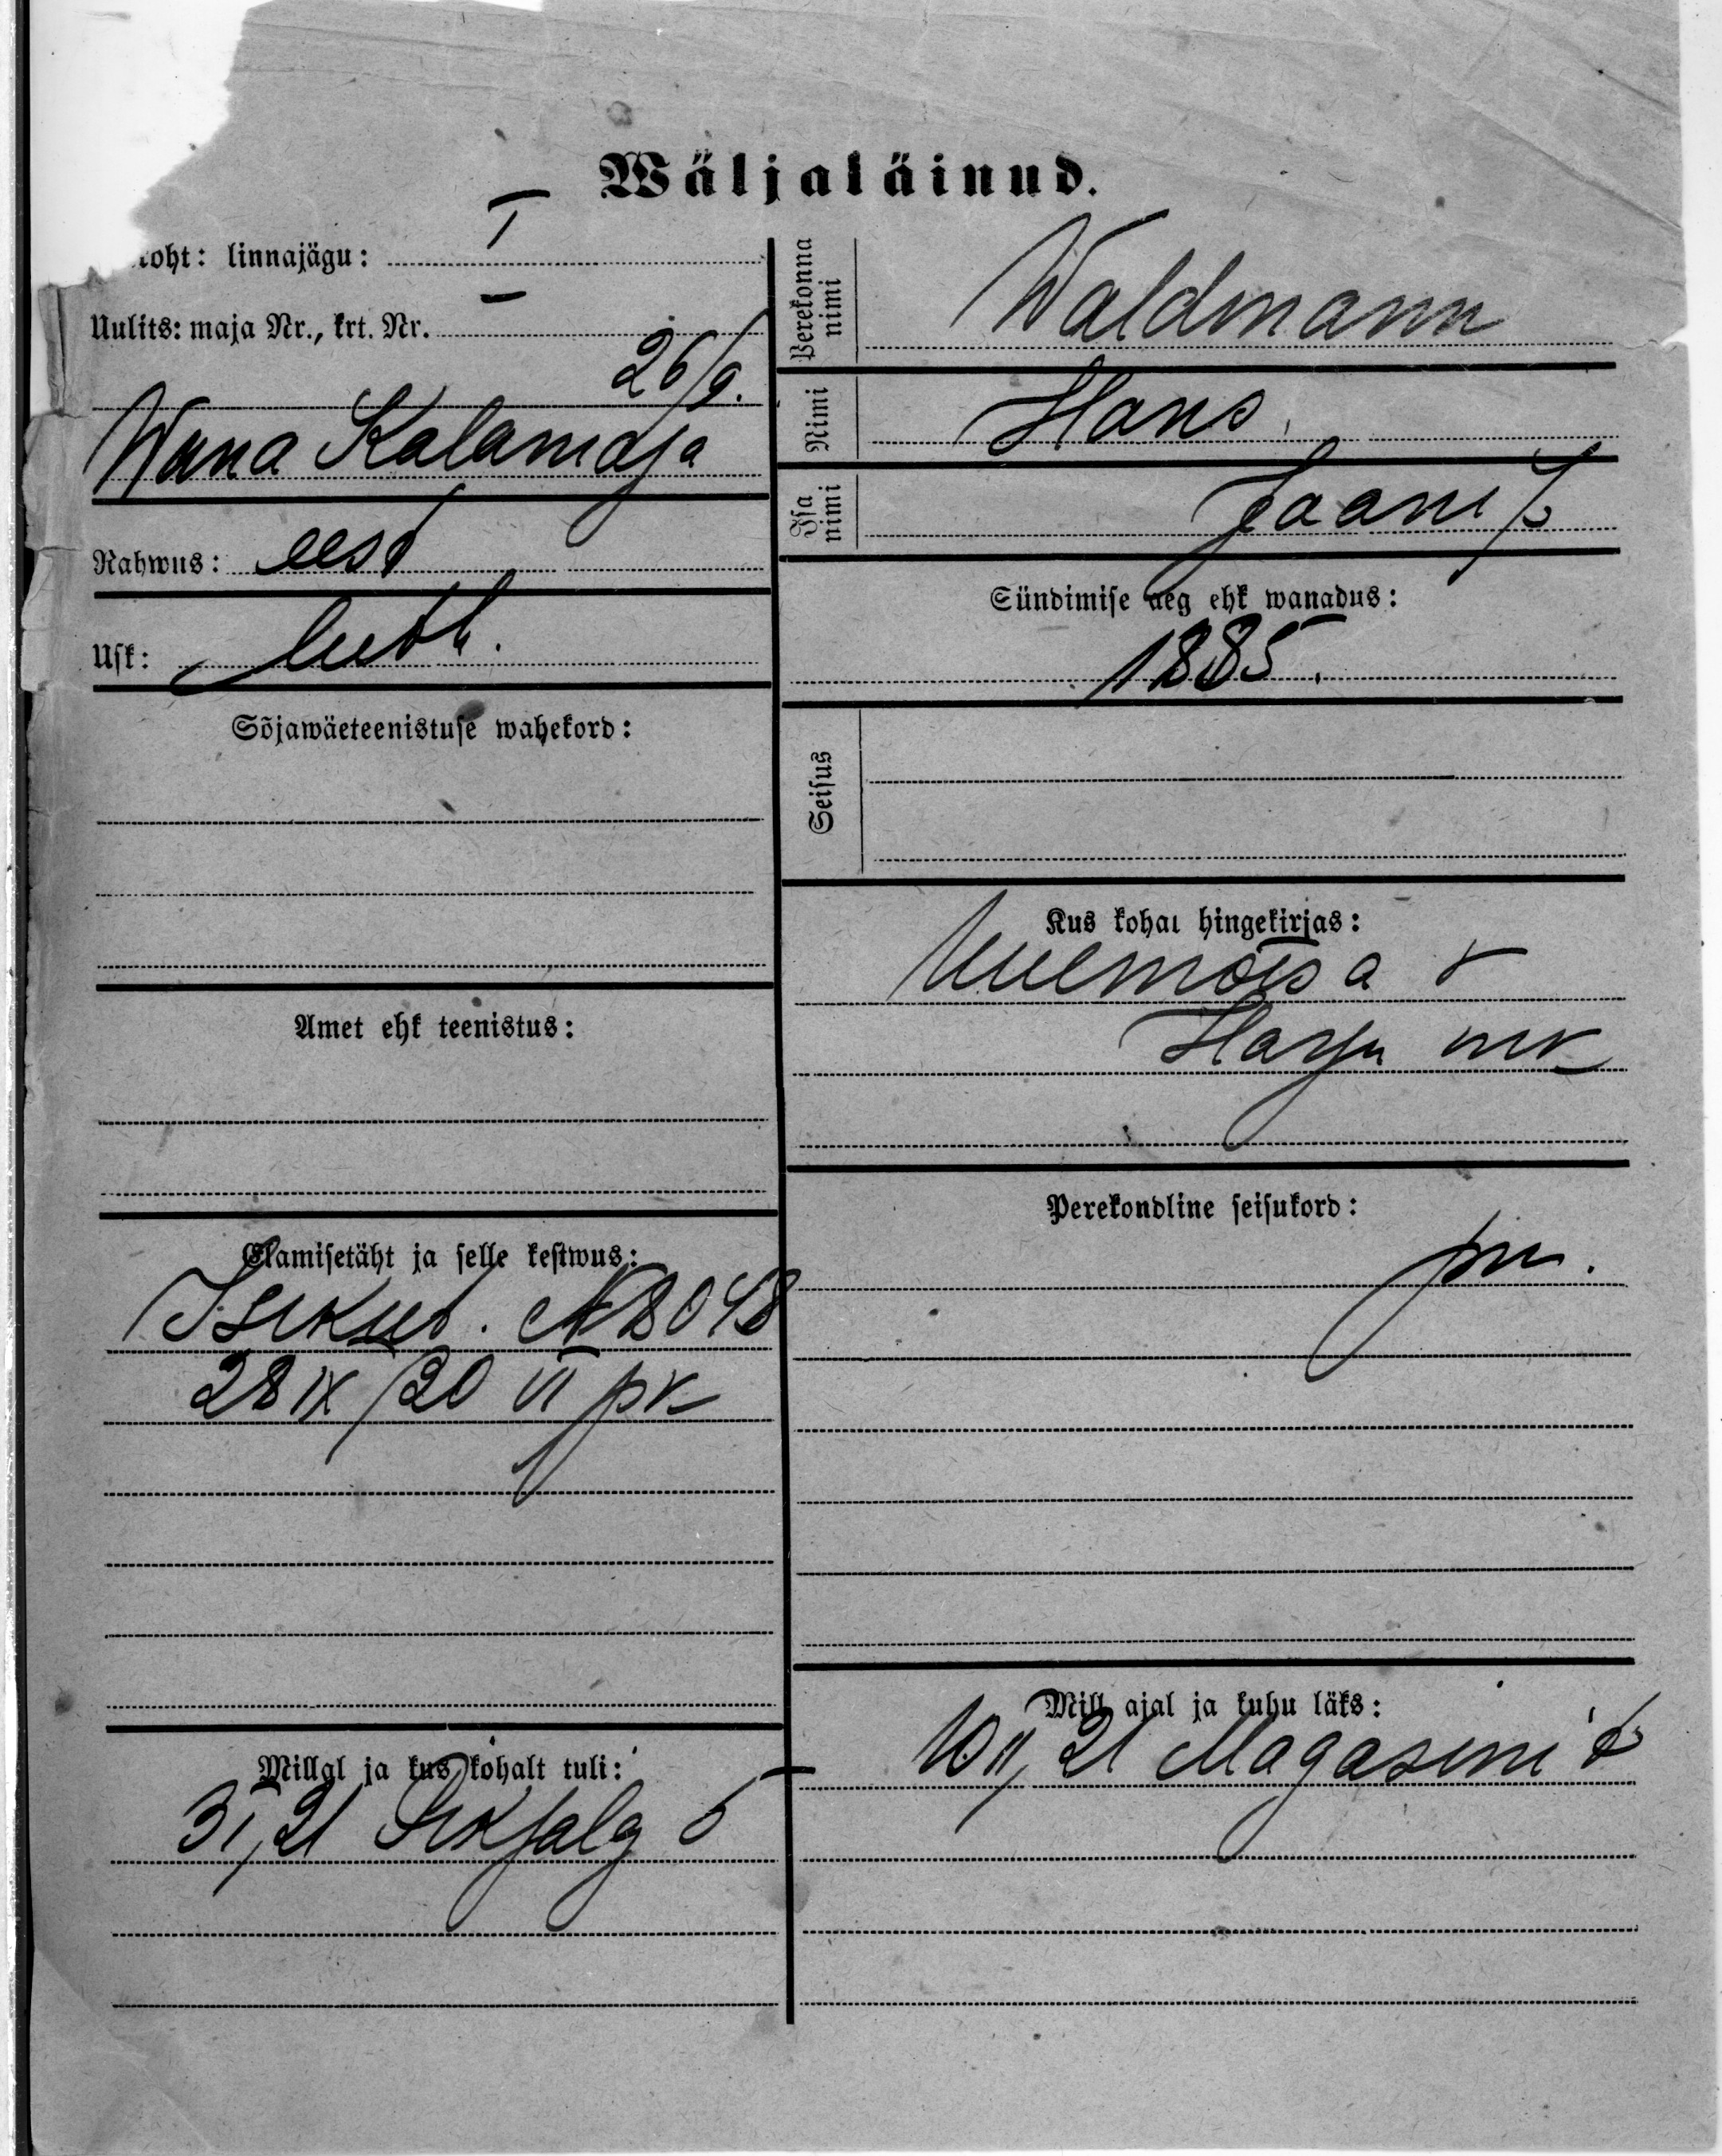 Wäljaläinud.
koht: linnajägu: I
Uulits: maja Nr., krt. Nr.
26/9.
Wana Kalamaja
Rahwus: eest
Usk: luth.
Sõjawäeteenistuse wahekord:
Amet ehk teenistus:
Elamisetäht ja selle kestwus:
Isikut. N 8048
28 IX/20 VI pk
Millal ja kus kohalt tuli:
3 I, 21 Pikjalg 5
Perekonna nimi
Waldmann
Nimi
Hans
Isa nimi
Jaani
Sündimise aeg ehk wanadus:
1885.
Seisus
Kus kohal hingekirjas:
Uuemõisa v
Harju mk
Perekondline seisukord:
Mill ajal ja kuhu läks:
10 II, 21 Magasini